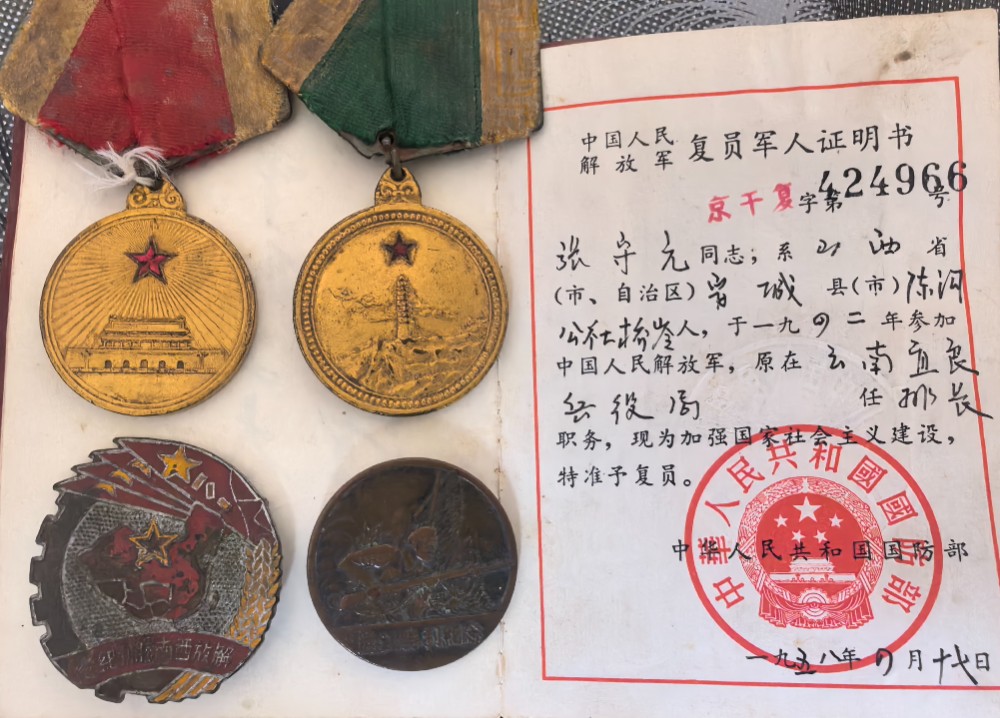 中国人民
解放军 复员军人证明书
京干复字第424966号
张守元同志；系山西省
(市、自治区)晋城县(市)陈沟
公社人，于一九四二年参加
中国人民解放军，原在云南宜良
兵役局 任排长
职务，现为加强国家社会主义建设，
特准予复员。
中华人民共和国国防部
一九五八年四月十七日
中華人民共和國國防部
解放西南